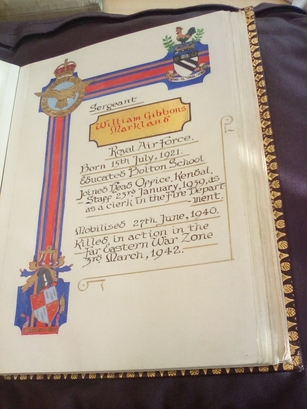 Sergeant
William Gibbons
Markland
Royal Air Force.
Born 15th July, 1921.
Educated Bolton School
Joined Head Office, Kendal,
Staff 23rd January, 1939, as
as a clerk in the Fire Depart
ment.
Mobilised 27th June, 1940.
Killed in action in the
Far Eastern War Zone
3rd March, 1942.